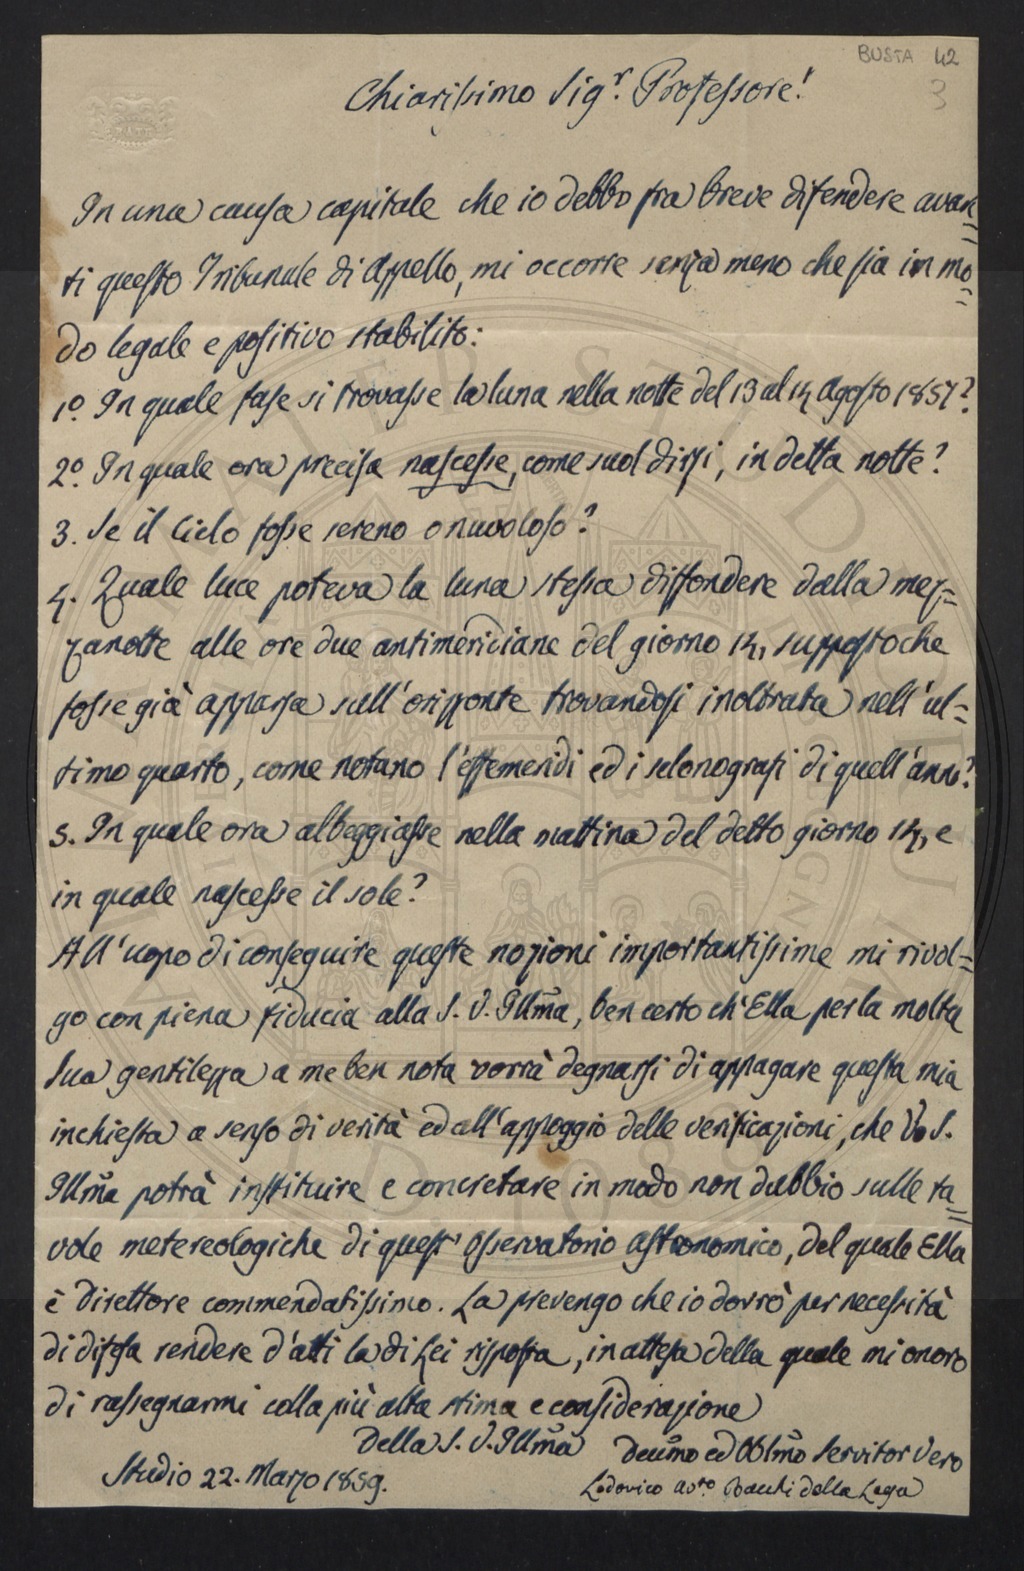 BUSTA 42
3
BATH
Chiarissimo Sig.r Professore!
In una causa capitale che io debbo fra breve difendere avan=
ti questo Tribunale di Appello, mi occorre senza meno che sia in mo=
do legale e positivo stabilito:
1.o In quale fase si trovasse la luna nella notte del 13 al 14 Agosto 1857?
2.o In quale ora precisa nascesse, come suol dirsi, in detta notte?
3. Se il Cielo fosse sereno o nuvoloso?
4. Quale luce poteva la luna stessa diffondere dalla mez=
zanotte alle ore due antimeridiane del giorno 14, supposto che
fosse già apparsa sull'orizzonte trovandosi inoltrata nell'ul=
timo quarto, come notano l'effemeridi ed i selonografi di quell'anno?
5. In quale ora albeggiasse nella mattina del detto giorno 14, e
in quale nascesse il sole?
All'uopo di conseguire queste nozioni importantissime mi rivol=
go con piena fiducia alla S. V. Illma, ben certo ch'Ella per la molta
Sua gentilezza a me ben nota vorrà degnarsi di appagare questa mia
inchiesta a senso di verità ed all'appoggio delle verificazioni, che V. S.
Illma potrà instituire e concretare in modo non dubbio sulle ta=
vole metereologiche di quest'Osservatorio Astronomico, del quale Ella
è Direttore commendatissimo. La prevengo che io dovrò per necessità
di difesa rendere d'atti la di Lei risposta, in attesa della quale mi onoro
di rassegnarmi colla più alta stima e considerazione
Della S. V. Illma Devmo ed Obblmo Servitor Vero
Studio 22. Marzo 1859. Lodovico Avto Bacchi della Lega